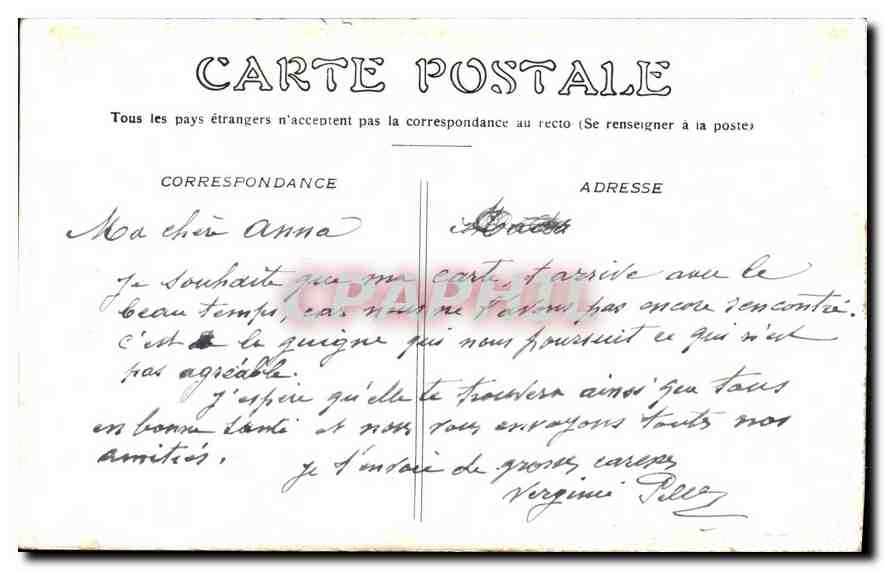 CARTE POSTALE
Tous les pays étrangers n'acceptent pas la correspondance au recto (Se renseigner à la poste)
CORRESPONDANCE
ADRESSE
Ma chère Anna
Je souhaite que ma carte t'arrive avec le
beau temps, car nous ne l'avons pas encore rencontré.
C'est la guigne qui nous poursuit ce qui n'est
pas agréable.
J'espère qu'elle te trouvera ainsi que tous
en bonne santé et nous vous envoyons toutes nos
amitiés.
Je t'envoie de grosses caresses
Verginie
CPAPHIL